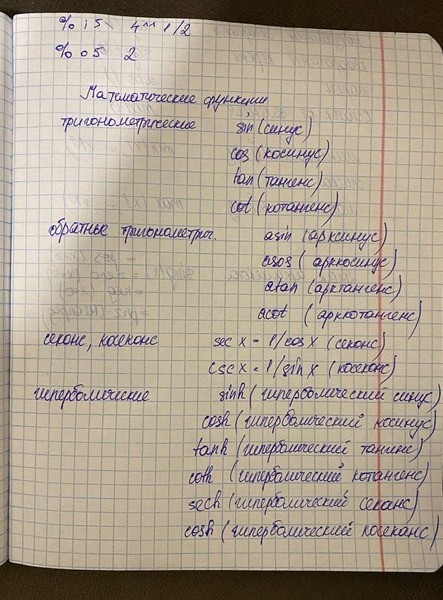 % i5 4^^1/2
% o5 2
Математические функции
тригонометрические sin (синус)
cos (косинус)
tan (тангенс)
cot (котангенс)
обратные тригонометрич. asin (арксинус)
acos (арккосинус)
atan (арктангенс)
acot (арккотангенс)
секонс, косеконс sec x = 1/cos x (секонс)
csc x = 1/sin x (косеконс)
гиперболические sinh (гиперболический синус)
cosh (гиперболический косинус)
tanh (гиперболический тангенс)
coth (гиперболический котангенс)
sech (гиперболический секанс)
cosh (гиперболический косеканс)